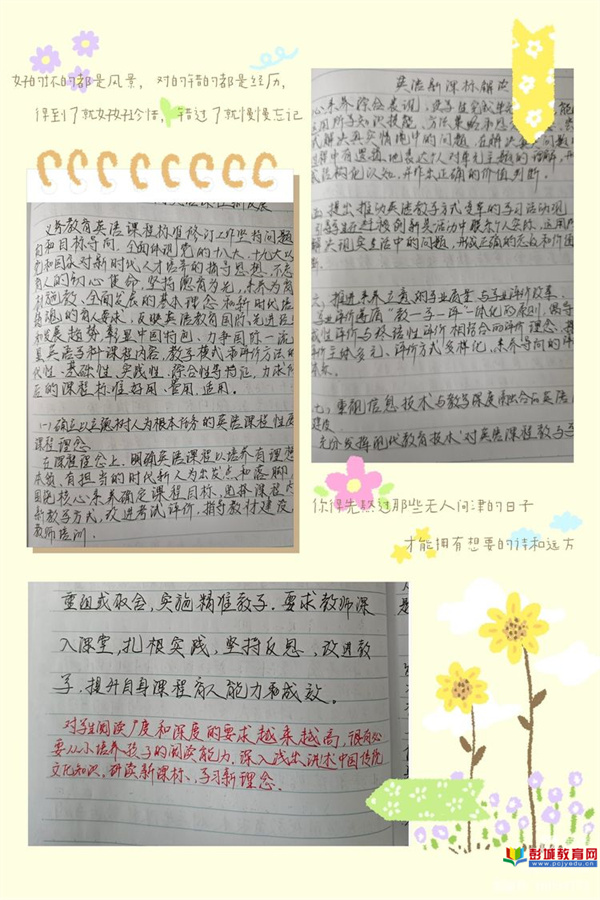 好的坏的都是风景，对的错的都是经历，
得到了就好好珍惜，错过了就慢慢忘记
义务教育英语课程标准修订工作坚持问题
向和目标导向，全面体现党的十八大、十九大以
党和国家对新时代人才培养的指导思想，不忘
有人的初心使命，坚持德育为先，素养为育
材施教，全面发展的基本理念和新时代培
德的育人要求，反映英语教育国际先进经
和发展趋势，彰显中国特色，力争国际一流
显英语学科课程内容，教学模式和评价方法的
代性、基础性、实践性、综合性等特征，力求
应的课程标准好用、管用、适用。
(一)确立以立德树人为根本任务的英语课程性质
课程理念
在课程理念上，明确英语课程以培养有理想
本领、有担当的时代新人为出发点和落脚
围绕核心素养确定课程目标，选择课程内
新教学方式，改进考试评价，指导教材建设
教师培训．
英语新课标解读
心素养综合表现，使学生完成
运用所学知识技能、方法策略和思
式解决真实情境中的问题，在解决问题
过程中有逻辑地表达个人对单元主题的理解，形
成结构化认知，并作出正确的价值判断。
五、提出推动英语教学方式变革的学习活动观
引导学生在迁移创新类活动中联系个人实际，运用所
解决现实生活中的问题，形成正确的态度和价值
断
六、推进素养立意的学业质量与学业评价改革．
学业评价遵循“教—学—评”一体化的原则，倡导
成性评价与终结性评价相结合的评价理念，提
价主体多元、评价方式多样化，素养导向的评
七、重视信息技术与教学深度融合的英语
程度
充分发挥现代教育技术对英语课程教与学
你得先熬过那些无人问津的日子
才能拥有想要的诗和远方
重组或取舍，实施精准教学．要求教师深
入课堂，扎根实践，坚持反思、改进教
学，提升自身课程育人能力和成效。
对学生阅读广度和深度的要求越来越高，很有必
要从小培养孩子的阅读能力．深入浅出讲述中国传统
文化知识，研读新课标、学习新理念．
彭城教育网
www.pcjyedu.cn